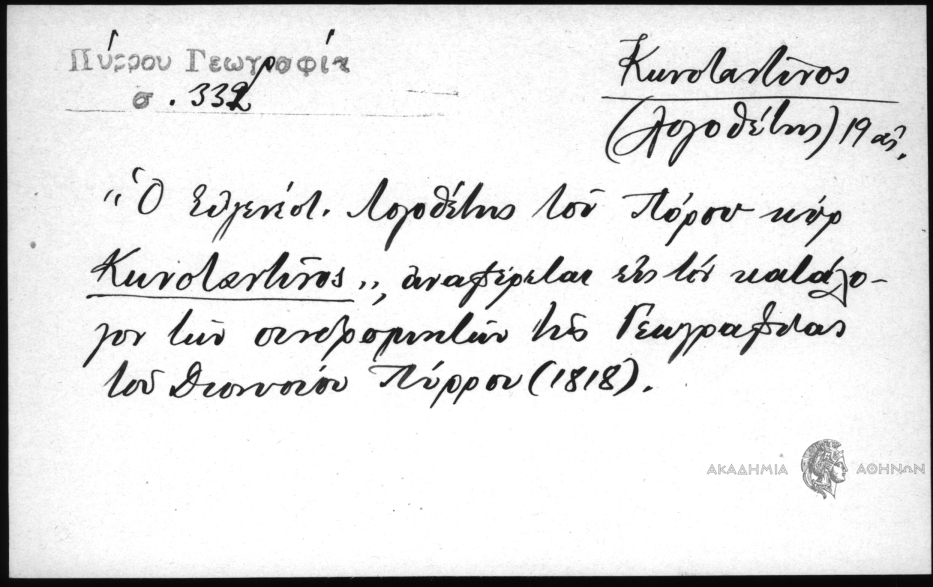 Πύρρου Γεωγραφία
σ. 332
Κωνσταντῖνος
(Λογοθέτης) 19 αἰ.
"Ὁ Εὐγενέστ. Λογοθέτης τοῦ Πόρου κύρ
Κωνσταντῖνος", ἀναφέρεται εἰς τόν κατάλο-
γον τῶν συνδρομητῶν τῆς Γεωγραφίας
τοῦ Διονυσίου Πύρρου (1818).
ΑΚΑΔΗΜΙΑ ΑΘΗΝΩΝ